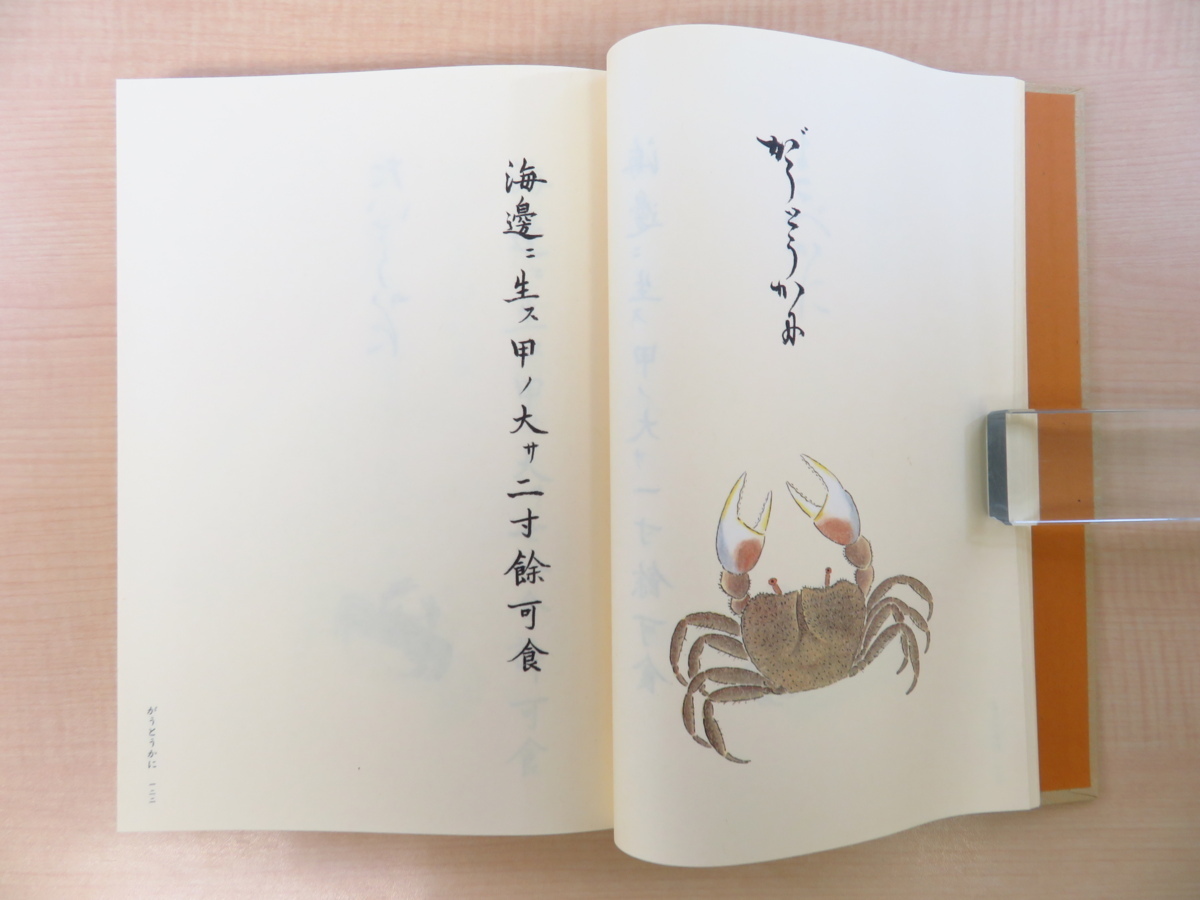 がうとうかに
海邊ニ生ス甲ノ大サ二寸餘可食
がうとうかに 一二二